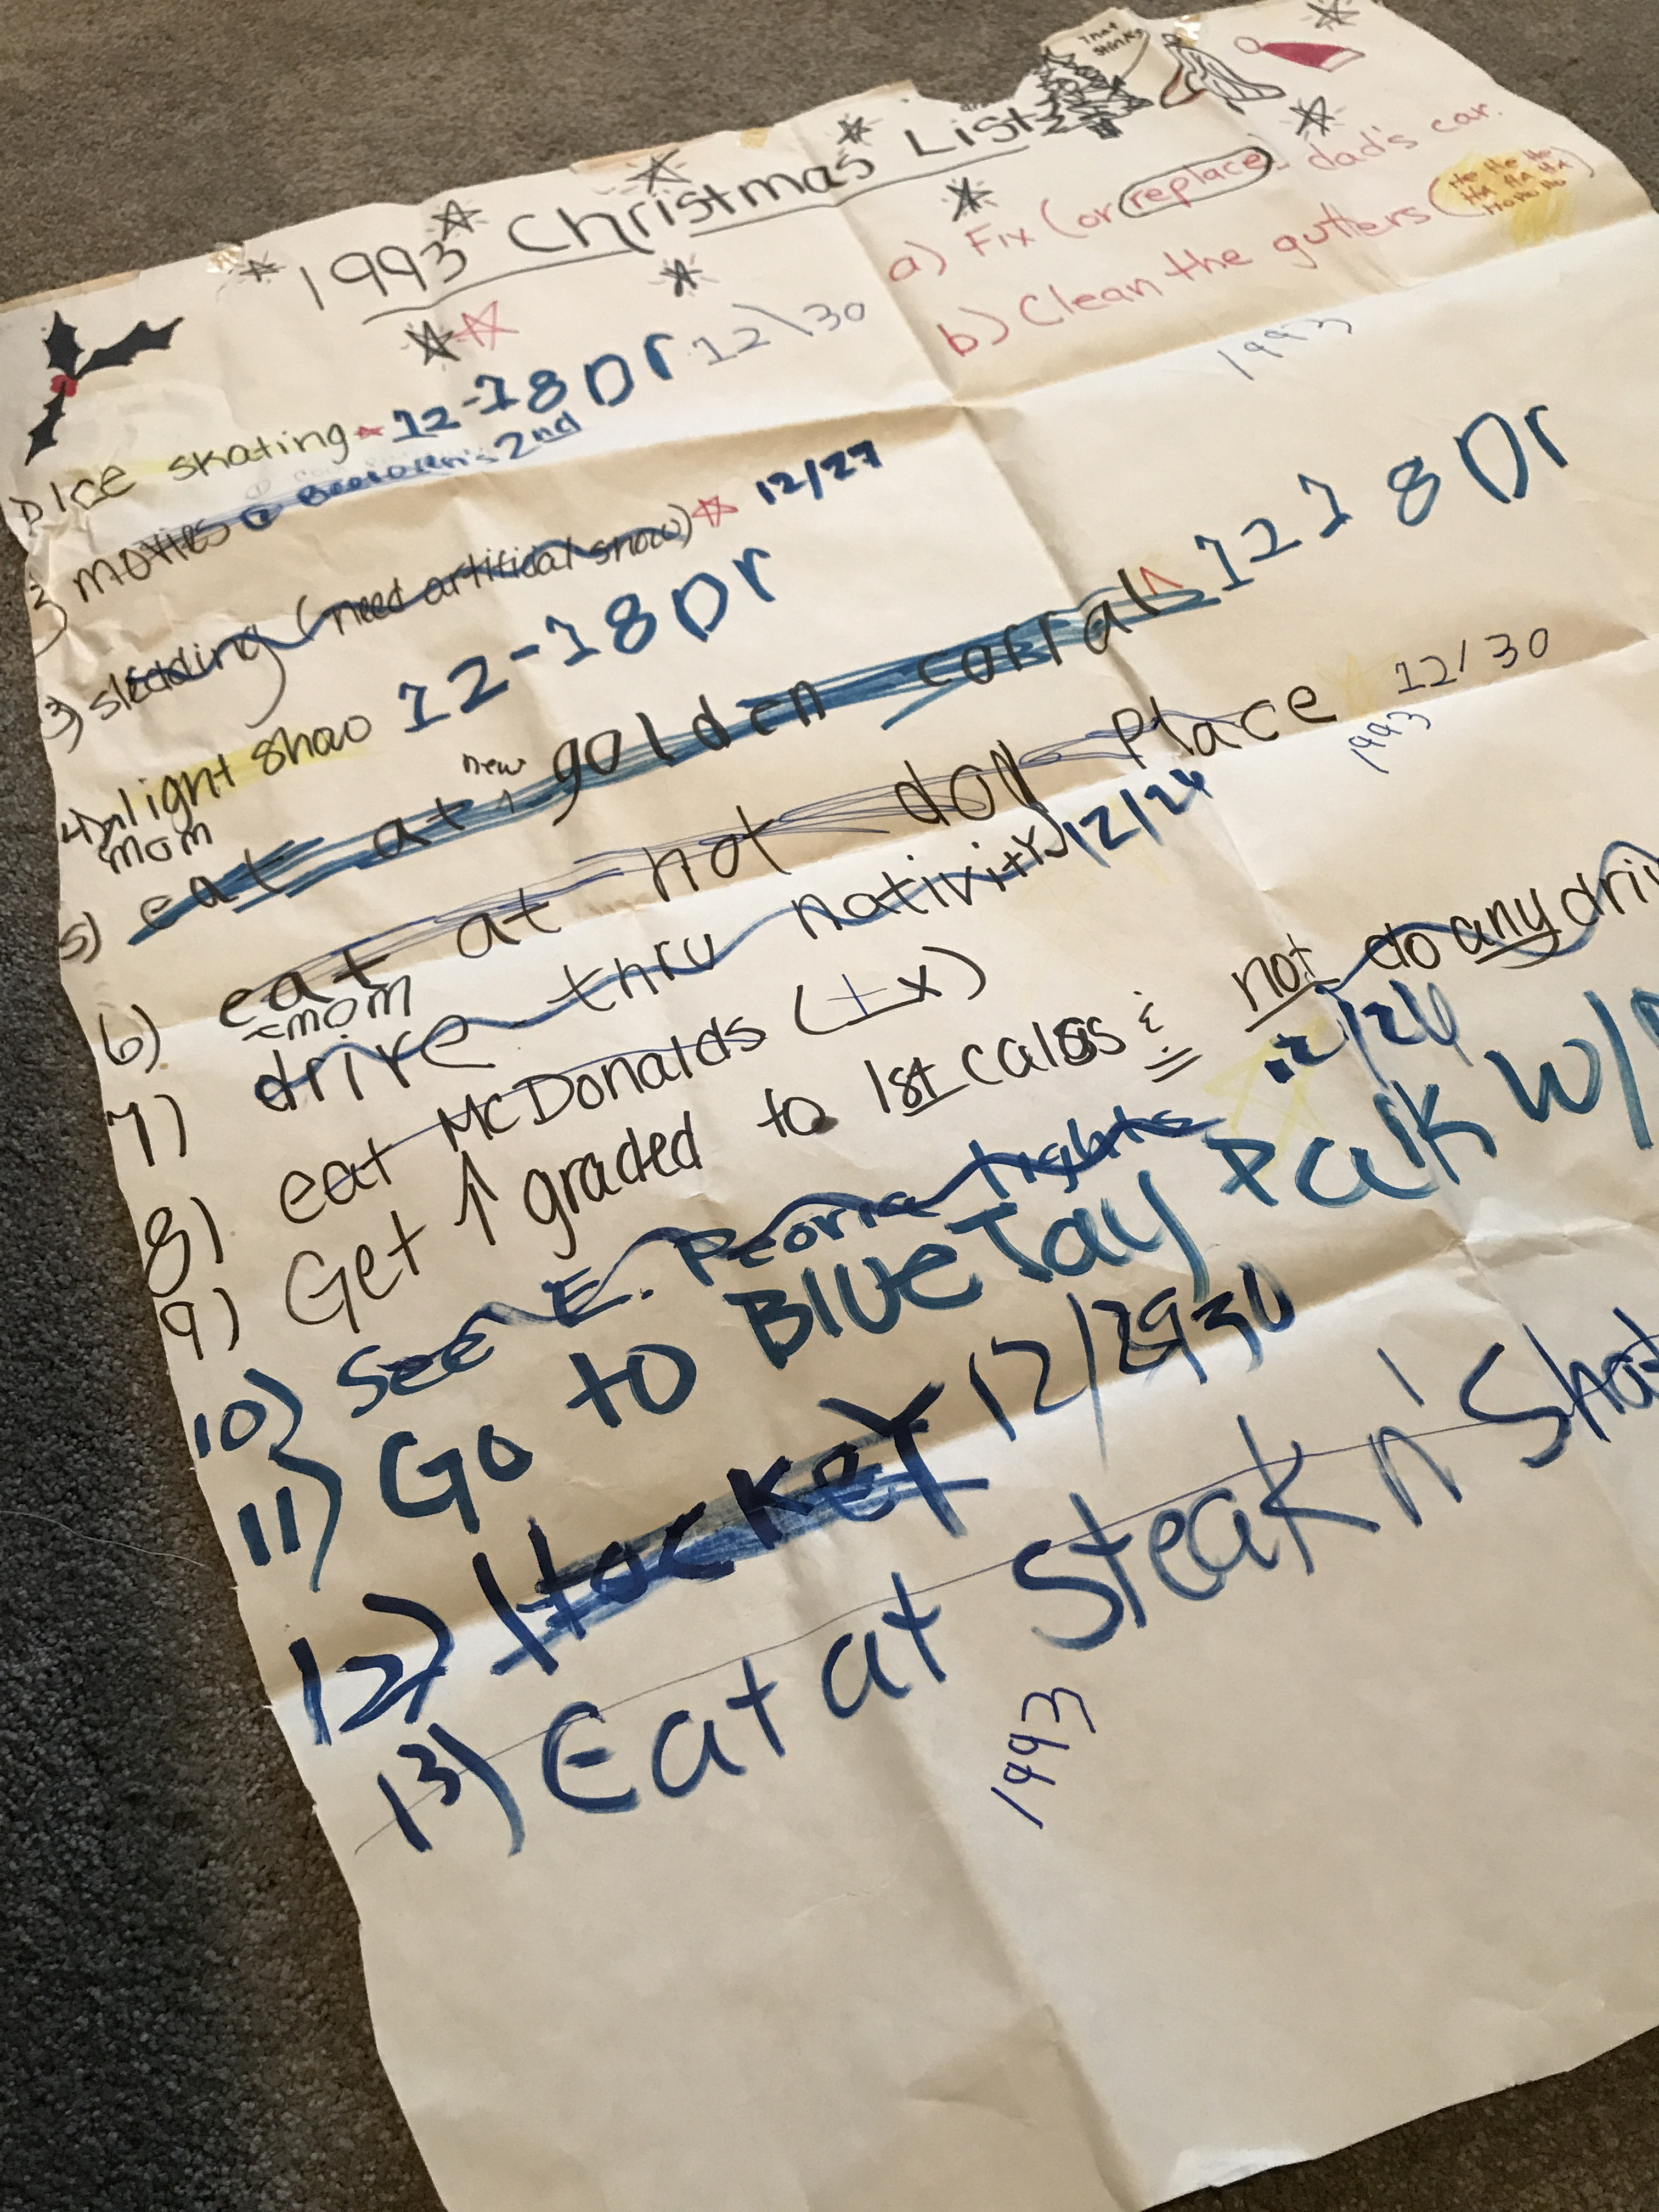 That stinks
1993 Christmas List
a) Fix (or replace) dad's car.
b) Clean the gutters (Ho Ho Ho Ha Ha Ha Ho Ho Ho)
1993
1) ICE skating 12-18 Dr 12\30
2) movies @ 2nd
3) sledding (need artificial snow) 12/27
4) light show 12-18 Dr
mom
5) eat at new golden corral 12 18 Dr
6) eat at hot dog place 12/30
1993
mom
7) drive thru nativity 12/26
8) eat McDonalds (1x)
9) Get ↑ graded to 1st calss & not do any
10) See E. Peoria lights 12/26
11) Go to Blue Jay Park w/
12) Hockey 12/29 30
13) Eat at Steak n'
1993